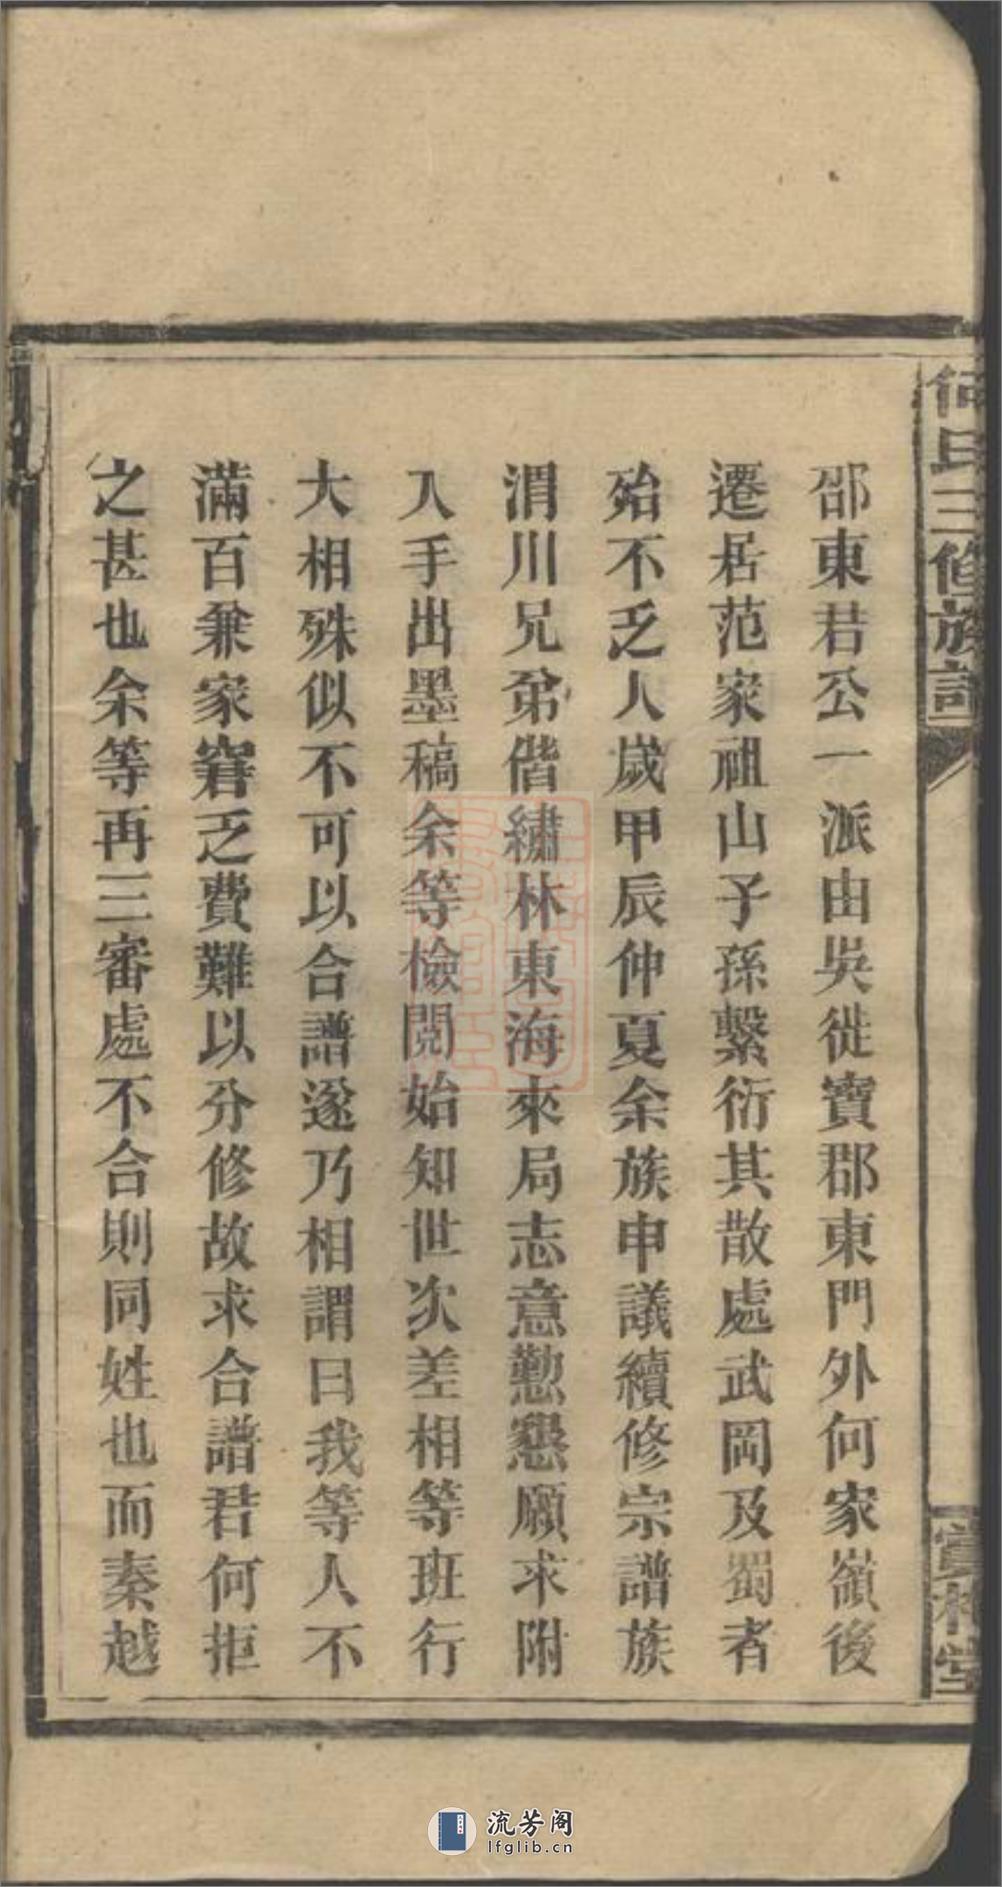 何氏三修族譜
賞梅堂
邵東君公一派由吳徙寶郡東門外何家嶺後
遷居范家祖山子孫繫衍其散處武岡及蜀者
殆不乏人歲甲辰仲夏余族申議續修宗譜族
渭川兄弟偕繡林東海來局志意懃懇願求附
入手出墨稿余等檢閱始知世次差相等班行
大相殊似不可以合譜遂乃相謂曰我等人不
滿百兼家窘乏費難以分修故求合譜君何拒
之甚也余等再三審處不合則同姓也而秦越
流芳阁
lfglib.cn